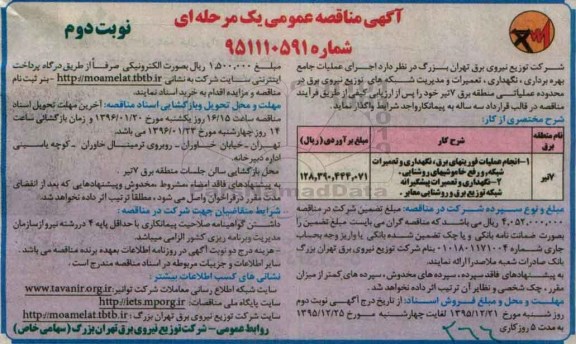 آگهی مناقصه عمومی یک مرحله ای
شماره ۹۵۱۱۱۰۵۹۱
نوبت دوم
شرکت توزیع نیروی برق تهران بزرگ در نظر دارد اجرای عملیات جامع
بهره برداری ، نگهداری ، تعمیرات و مدیریت شبکه های توزیع نیروی برق در
محدوده عملیاتی منطقه برق ۷تیر خود را پس از ارزیابی کیفی از طریق فرآیند
مناقصه در قالب قرارداد سه ساله به پیمانکار واجد شرایط واگذار نماید.
شرح مختصری از کار:
نام منطقه برق
شرح کار
مبلغ برآوردی (ریال)
۷تیر
۱-انجام عملیات فوریتهای برق، نگهداری و تعمیرات
شبکه، و رفع خاموشیهای روشنایی.
۲-نگهداری و تعمیرات پیشگیرانه
شبکه توزیع برق و روشنایی معابر.
۱۲۸,۳۹۰,۴۴۴,۰۷۱
مبلغ و نوع سپرده شرکت در مناقصه: مبلغ تضمین شرکت در مناقصه
۴,۰۵۲,۰۰۰,۰۰۰ ریال می باشد که مناقصه گران می بایست مبلغ تضمین را
بصورت ضمانت نامه بانکی و یا چک تضمین شده بانکی یا واریز وجه بحساب
جاری شماره ۰۱۰۱۸۰۱۱۷۱۰۰۴ بنام شرکت توزیع نیروی برق تهران بزرگ
بانک صادرات شعبه ملاصدرا ارائه نمایند.
به پیشنهادهای فاقد سپرده، سپرده های مخدوش، سپرده های کمتر از میزان
مقرر، چک شخصی و نظایر آن ترتیب اثر داده نخواهد شد.
مهلت و محل و مبلغ فروش اسناد: از تاریخ درج آگهی نوبت دوم
روز شنبه مورخ ۱۳۹۵/۱۲/۲۱ لغایت چهارشنبه مورخ ۱۳۹۵/۱۲/۲۵
به مدت ۵ روز کاری
۲۶۶
مبلغ ۱,۵۰۰,۰۰۰ ریال بصورت الکترونیکی صرفاً از طریق درگاه پرداخت
اینترنتی سایت شرکت به نشانی http://moamelat.tbtb.ir -بنر ثبت نام
مناقصه و مزایده اقدام به خرید اسناد نمایند.
مهلت و محل تحویل و بازگشایی اسناد مناقصه: آخرین مهلت تحویل اسناد
ساعت ۱۶/۱۵ روز یکشنبه مورخ ۱۳۹۶/۰۱/۲۰ و زمان بازگشائی ساعت
۱۴ روز چهارشنبه مورخ ۱۳۹۶/۰۱/۲۳ می باشد.
تهران - خیابان خاوران - روبروی ترمینال خاوران - کوچه یاسینی
اداره دبیرخانه.
محل بازگشایی سالن جلسات منطقه برق ۷تیر
به پیشنهادهای فاقد امضاء مشروط مخدوش و پیشنهادهایی که بعد از انقضای
مدت مقرر در فراخوان واصل می شود، مطلقا ترتیب اثر داده نخواهد شد.
شرایط متقاضیان جهت شرکت در مناقصه:
داشتن گواهینامه صلاحیت پیمانکاری با حداقل پایه ۴ در رشته نیرو از سازمان
مدیریت و برنامه ریزی کشور الزامی میباشد.
- هزینه درج دو نوبت آگهی در روزنامه اطلاعات بعهده برنده مناقصه می باشد.
سایر اطلاعات و جزییات مربوطه در اسناد مناقصه مندرج است.
نشانی های کسب اطلاعات بیشتر:
سایت شبکه اطلاع رسانی معاملات شرکت توانیر: www.tavanir.org.ir
سایت پایگاه ملی مناقصات: http://iets.mporg.ir
سایت شرکت توزیع نیروی برق تهران بزرگ: http://moamelat.tbtb.ir
روابط عمومی - شرکت توزیع نیروی برق تهران بزرگ (سهامی خاص)